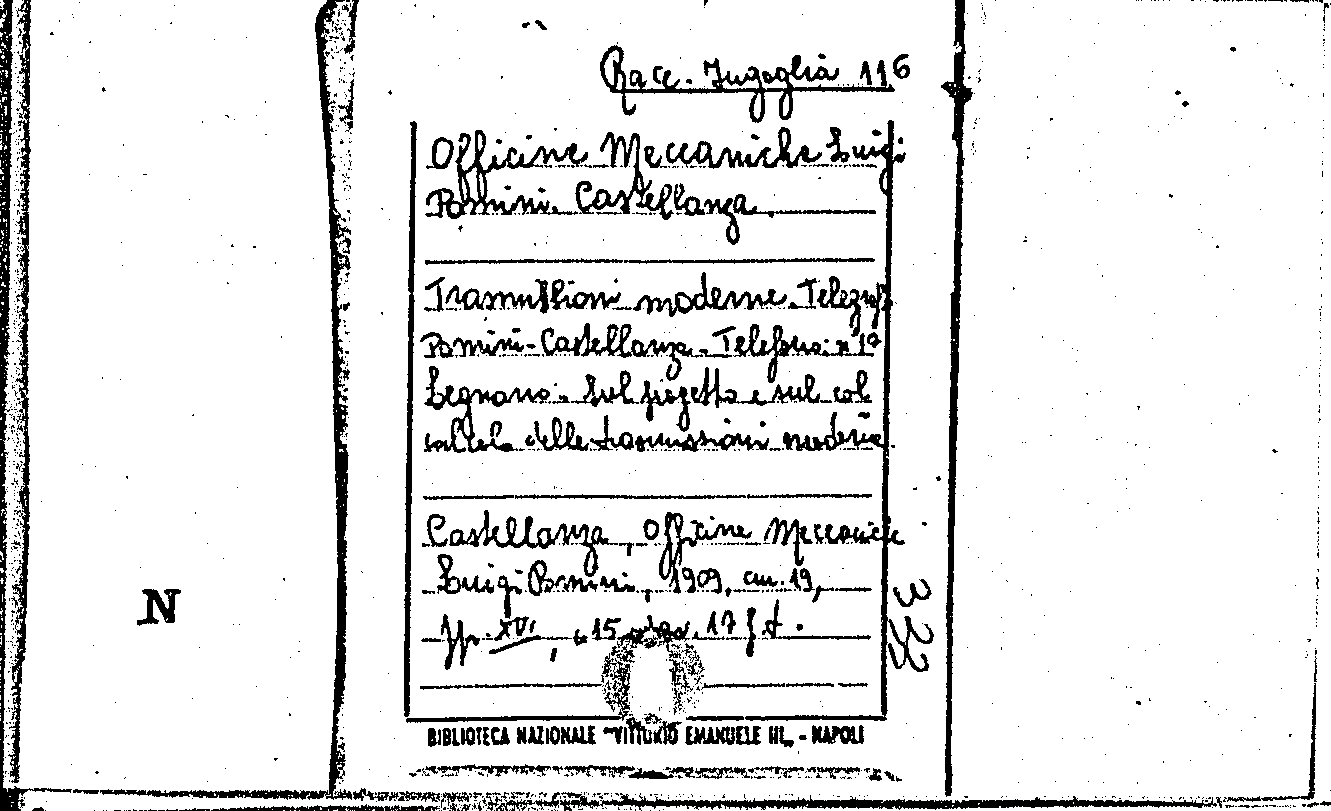 Racc. Jugoglia 116
Officine Meccaniche Luigi
Pomini. Castellanza.
Trasmissioni moderne. Telegraf.
Pomini-Castellanza. Telefono: n° 19
Legnano. Sul progetto e sul cal
calcolo delle trasmissioni moderne.
Castellanza, Officine Meccaniche
Luigi Pomini, 1909, cm. 19,
pp. XVI, 15 17 f.t.
BIBLIOTECA NAZIONALE "VITTORIO EMANUELE III„ - NAPOLI
N